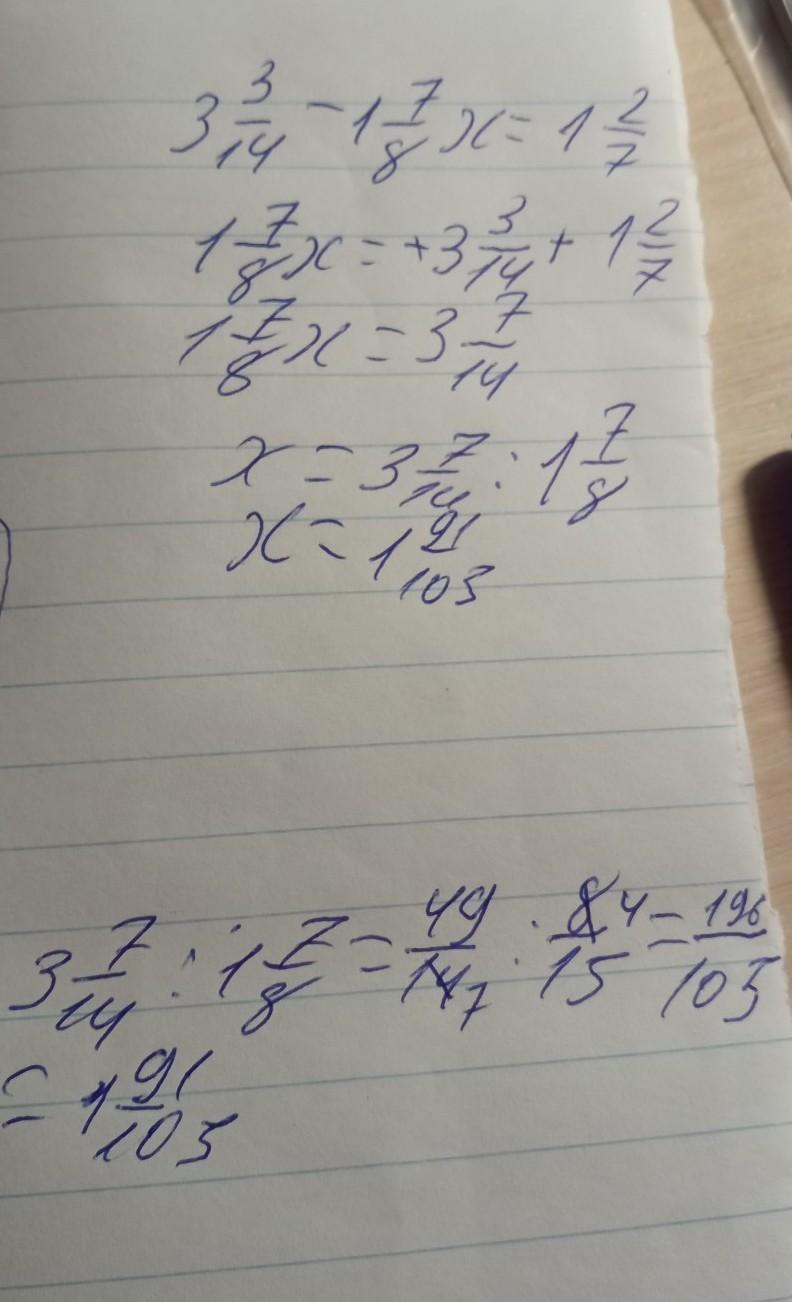 3 3/14 - 1 7/8 x = 1 2/7
1 7/8 x = +3 3/14 + 1 2/7
1 7/8 x = 3 7/14
x = 3 7/14 : 1 7/8
x = 1 91/105
3 7/14 : 1 7/8 = 49/14 7 · 8 4/15 = 196/105
= 1 91/105